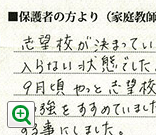 ■保護者の方より（家庭教師
志望校が決まってい
入らない状態でした
9月頃やっと志望校
強をすすめていました
る事にしました。